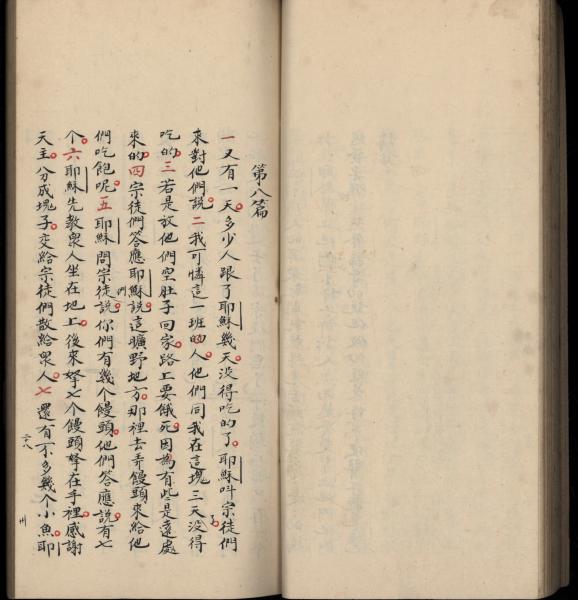 第八篇
一又有一天。多少人跟了耶穌幾天。沒得吃的了。耶穌呌宗徒們
來對他們說。二我可憐這一班的人。他們同我在這塊三天沒得
吃的。三若是放他們空肚子回家。路上要餓死。因為有些是遠處
來的。四宗徒們答應耶穌說。這曠野地方。那裡去弄饅頭來給他
們吃飽呢。五耶穌問宗徒們說。你們有幾个饅頭。他們答應說。有七
个。六耶穌先教眾人坐在地上。後來拏七个饅頭。拏在手裡。感謝
天主。分成塊子。交給宗徒們散給眾人。七還有不多幾个小魚。耶
二八
卅